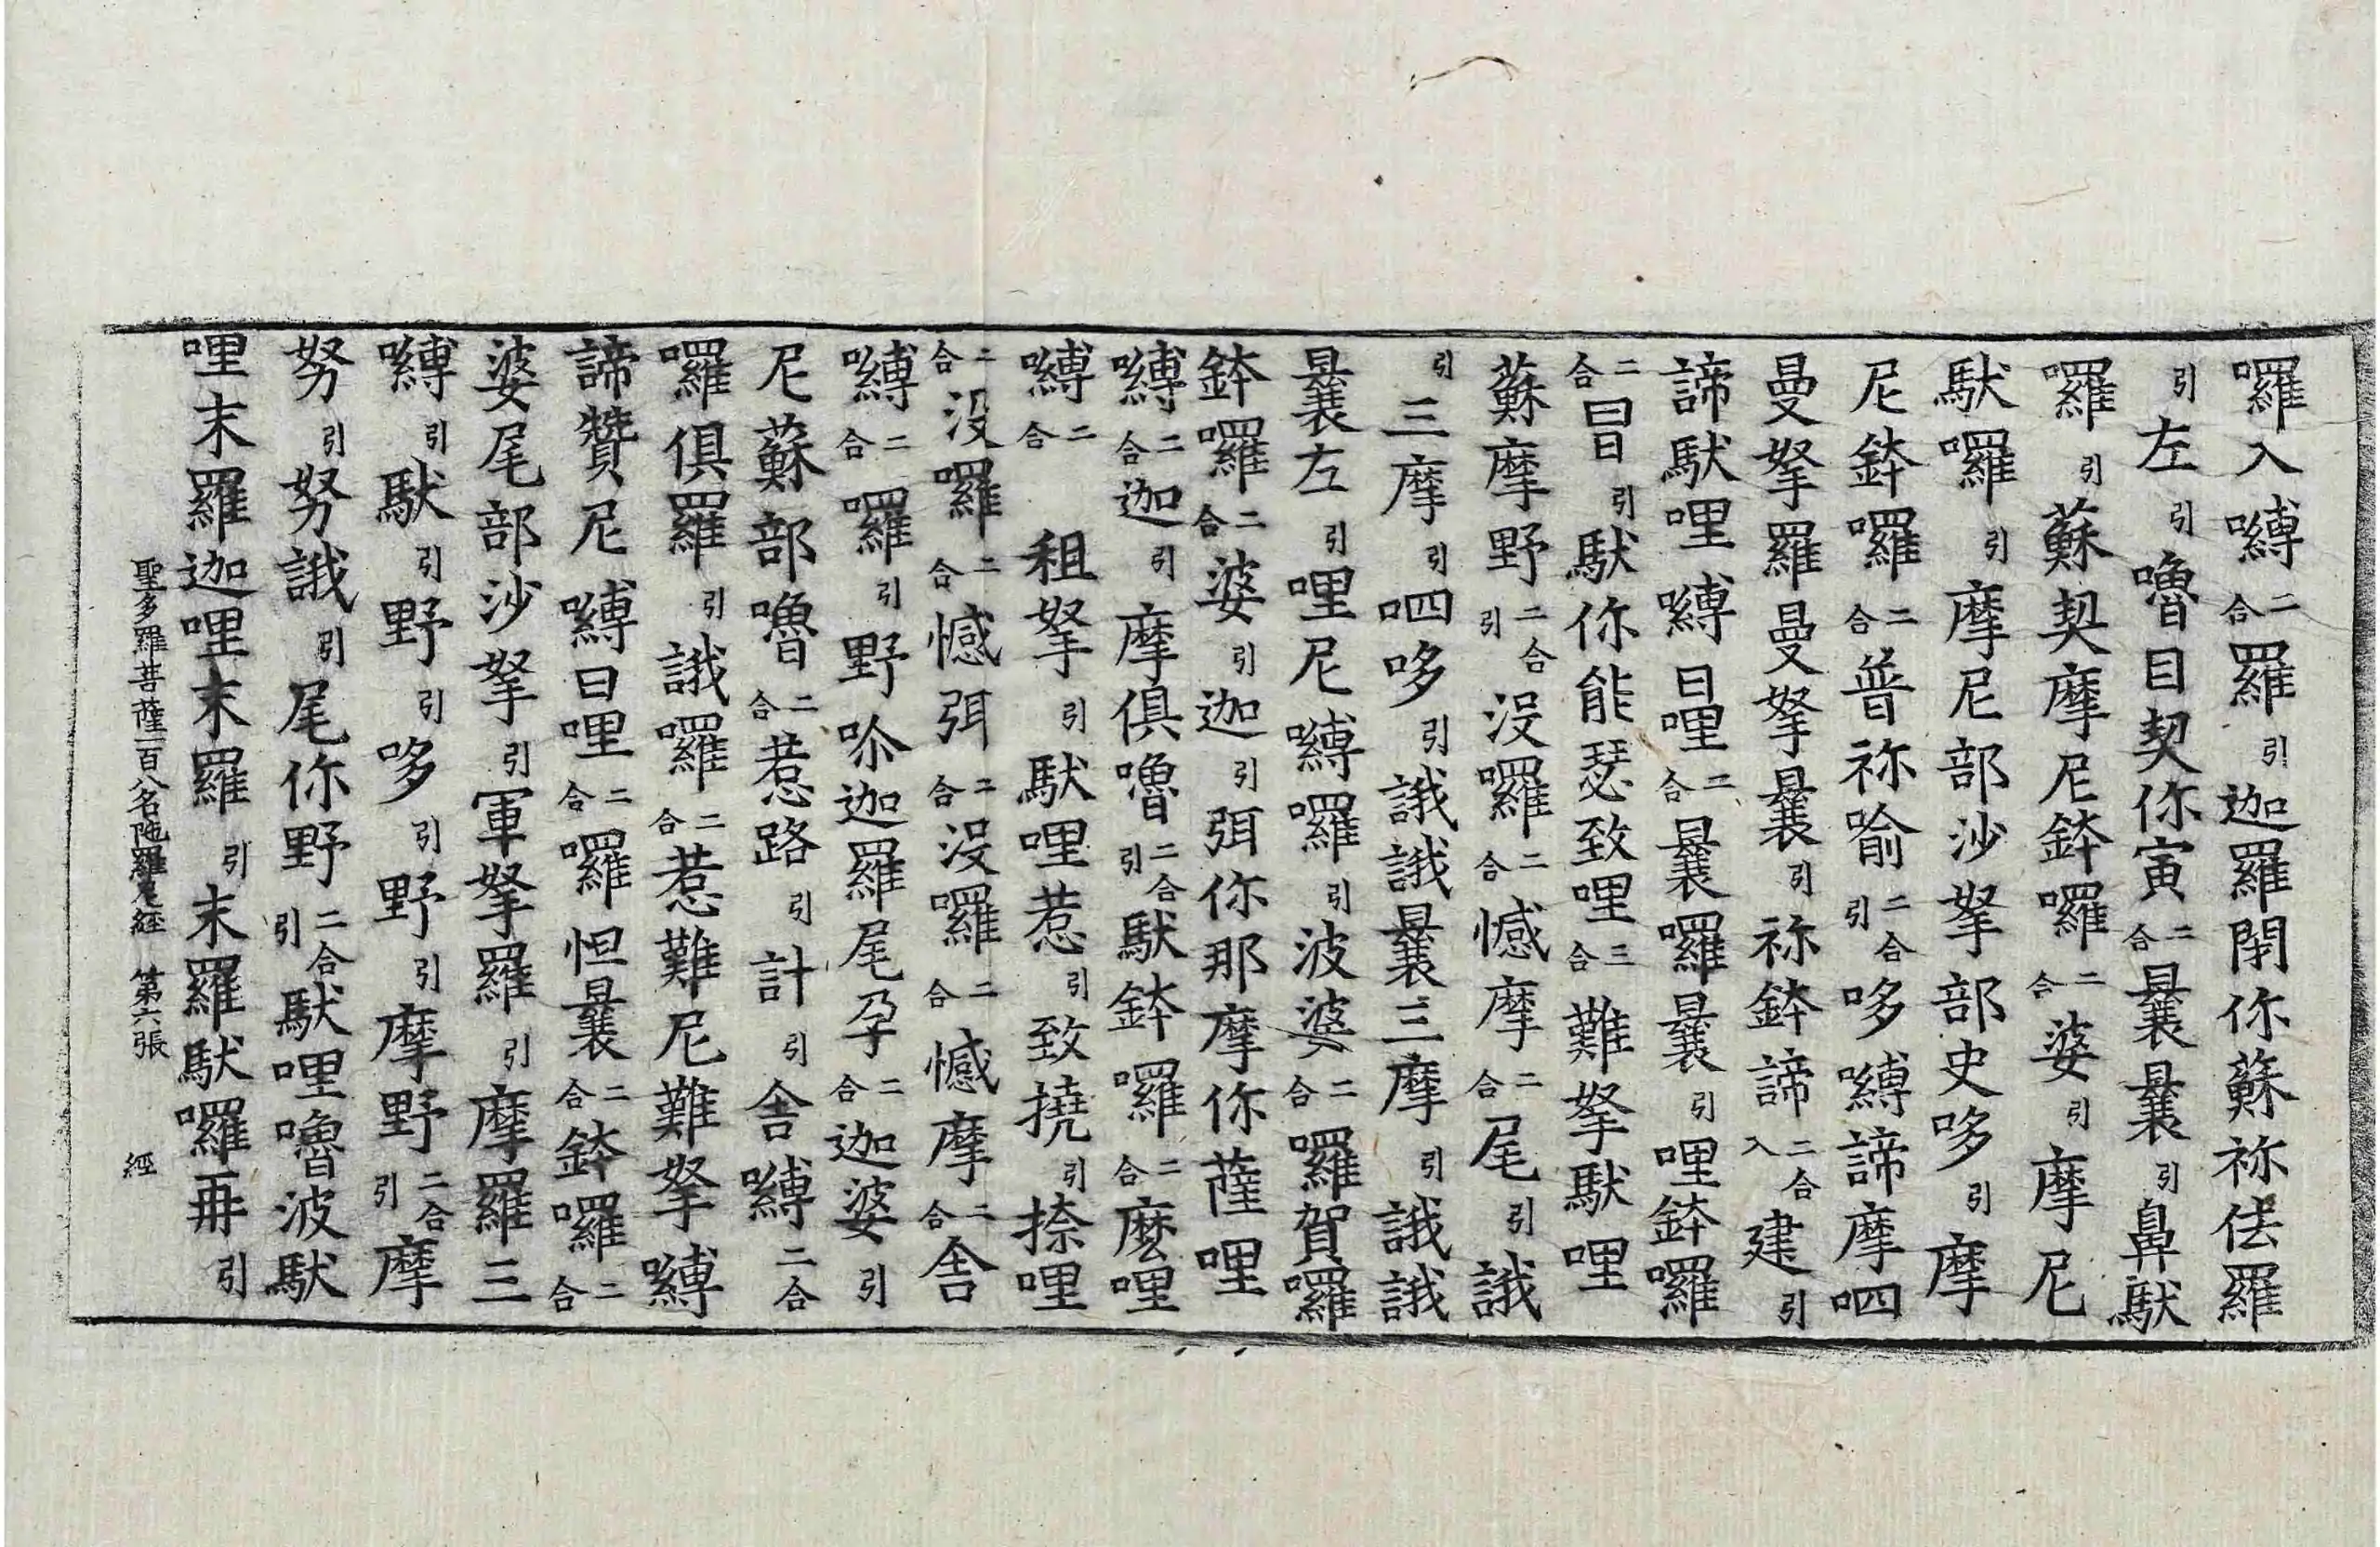 囉入嚩二合羅引迦羅閉你蘇祢佉羅
引左引嚕目契你寅二合曩曩引鼻馱
囉引蘇契摩尼鉢囉二合婆引摩尼
馱囉引摩尼部沙拏部史哆引摩
尼鉢囉二合普祢喻二合引哆嚩諦摩呬
曼拏羅曼拏曩引祢鉢諦二合入建引
諦馱哩嚩日哩二合曩囉曩引哩鉢囉
二合冒引馱你能瑟致哩三合難拏馱哩
蘇摩野二合引沒囉二合憾摩二合尾引誐
引三摩引呬哆引誐誐曩三摩引誐誐
曩左引哩尼嚩囉引波婆二合囉賀囉
鉢囉二合婆引迦引弭你那摩你薩哩
嚩二合迦引摩俱嚕二合引馱鉢囉二合麽哩
嚩二合租拏引馱哩惹引致撓引捺哩
二合没囉二合憾弭二合沒囉二合憾摩二合舎
嚩二合囉引野吤迦羅尾孕二合迦婆引
尼蘇部嚕二合惹路引計引舎嚩二合
囉俱羅引誐囉二合惹難尼難拏嚩
諦贊尼嚩日哩二合囉怛曩二合鉢囉二合
婆尾部沙拏引軍拏羅引摩羅三
嚩引馱引野引哆引野引摩野二合引摩
努引努誐引尾你野二合引馱哩嚕波馱
哩末羅迦哩末羅引末羅馱囉再引
聖多羅菩薩一百八名陁羅尼經 第六張 經